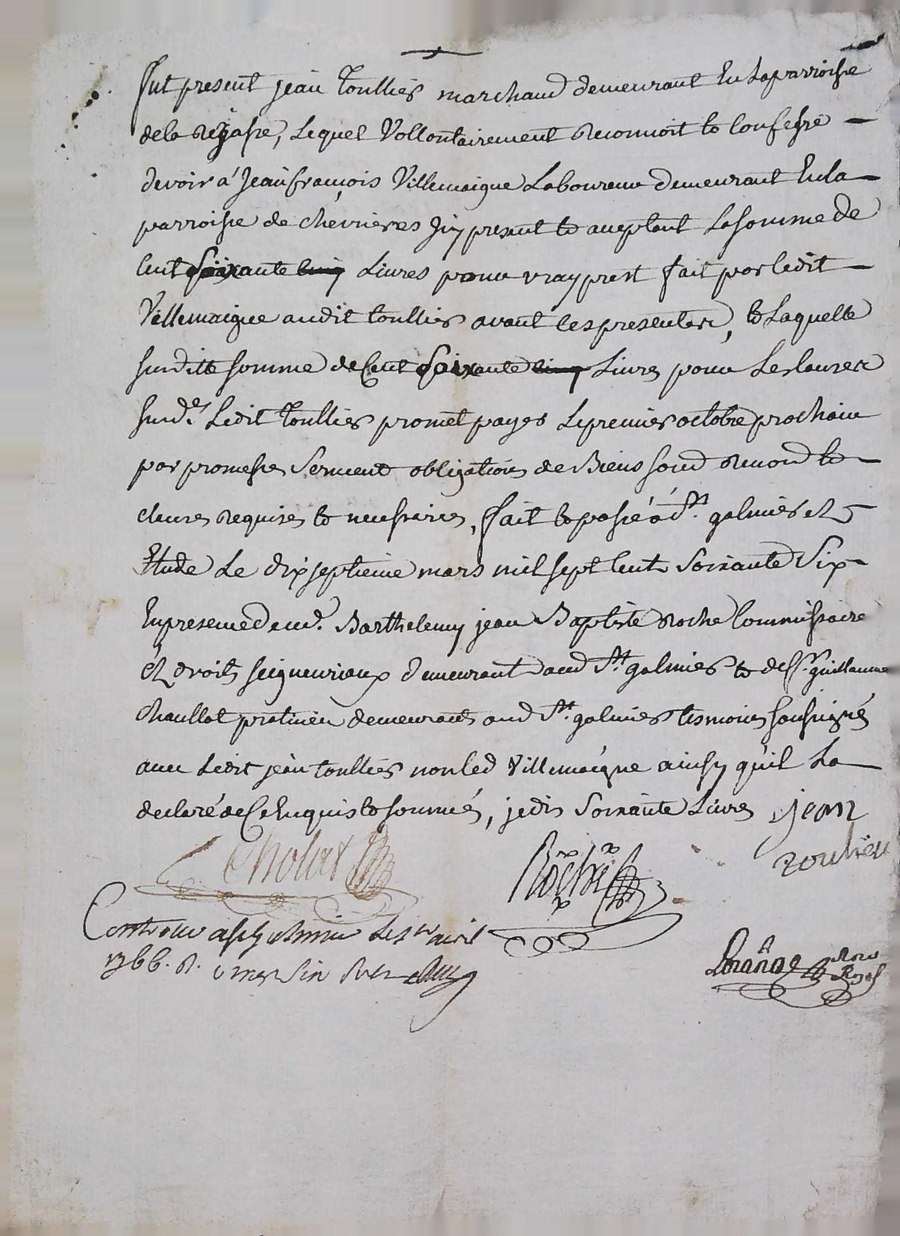 fut present jean Toullier marchand demeurant En Laparroisse
dela Rejasse, Lequel Vollontairement Reconnoit & Confesse
devoir à Jeanfrançois Villemaigne Laboureur demeurant Enla
parroisse de chevrieres Jcy present & acceptant Lasomme de
Cent Soixante Livres pour vray prest fait par Ledit
Villemaigne audit toullier avant ces presentes, & Laquelle
susditte somme de Cent Soixante Livres pour Les
susd. Ledit Toullier promet payer Lepremier octobre prochain
par promesse Serment obligation de Biens soud Renond &
clauses requises & necessaires, fait & passé à St. galmier
Etude Le dix septieme mars mil sept Cent Soixante Six
En presence de Barthelemy jean Baptiste Roche Commissaire
Droits seigneuriaux demeurant aud St. galmier & de Sr. guillaume
Chaullat praticien demeurant aud St. galmier tesmoins soussignés
avec Ledit jean toullier non led Villemaigne ainsy qu'il La
declaré de Ce Enquis & sommé, je dis Soixante Livres jean
toulier
Cholat Roche
Controllé a St. galmier Le avril
1766. R.
Royal